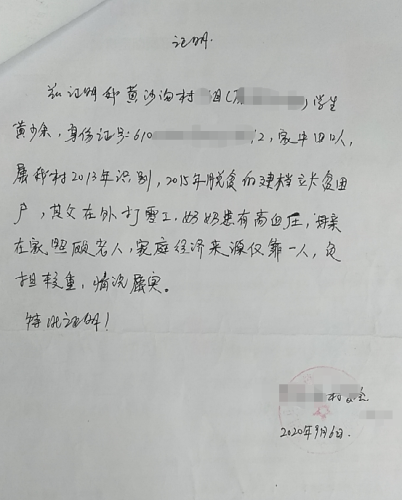 证明
兹证明我黄沙沟村 组( )学生
黄少余,身份证号:610 12,家中四口人,
属我村2013年识别,2015年脱贫的建档立卡贫困
户,其父在外打零工,奶奶患有高血压,母亲
在家照顾老人,家庭经济来源仅靠一人,负
担较重,情况属实。
特此证明!
村委会
2020年9月6日.